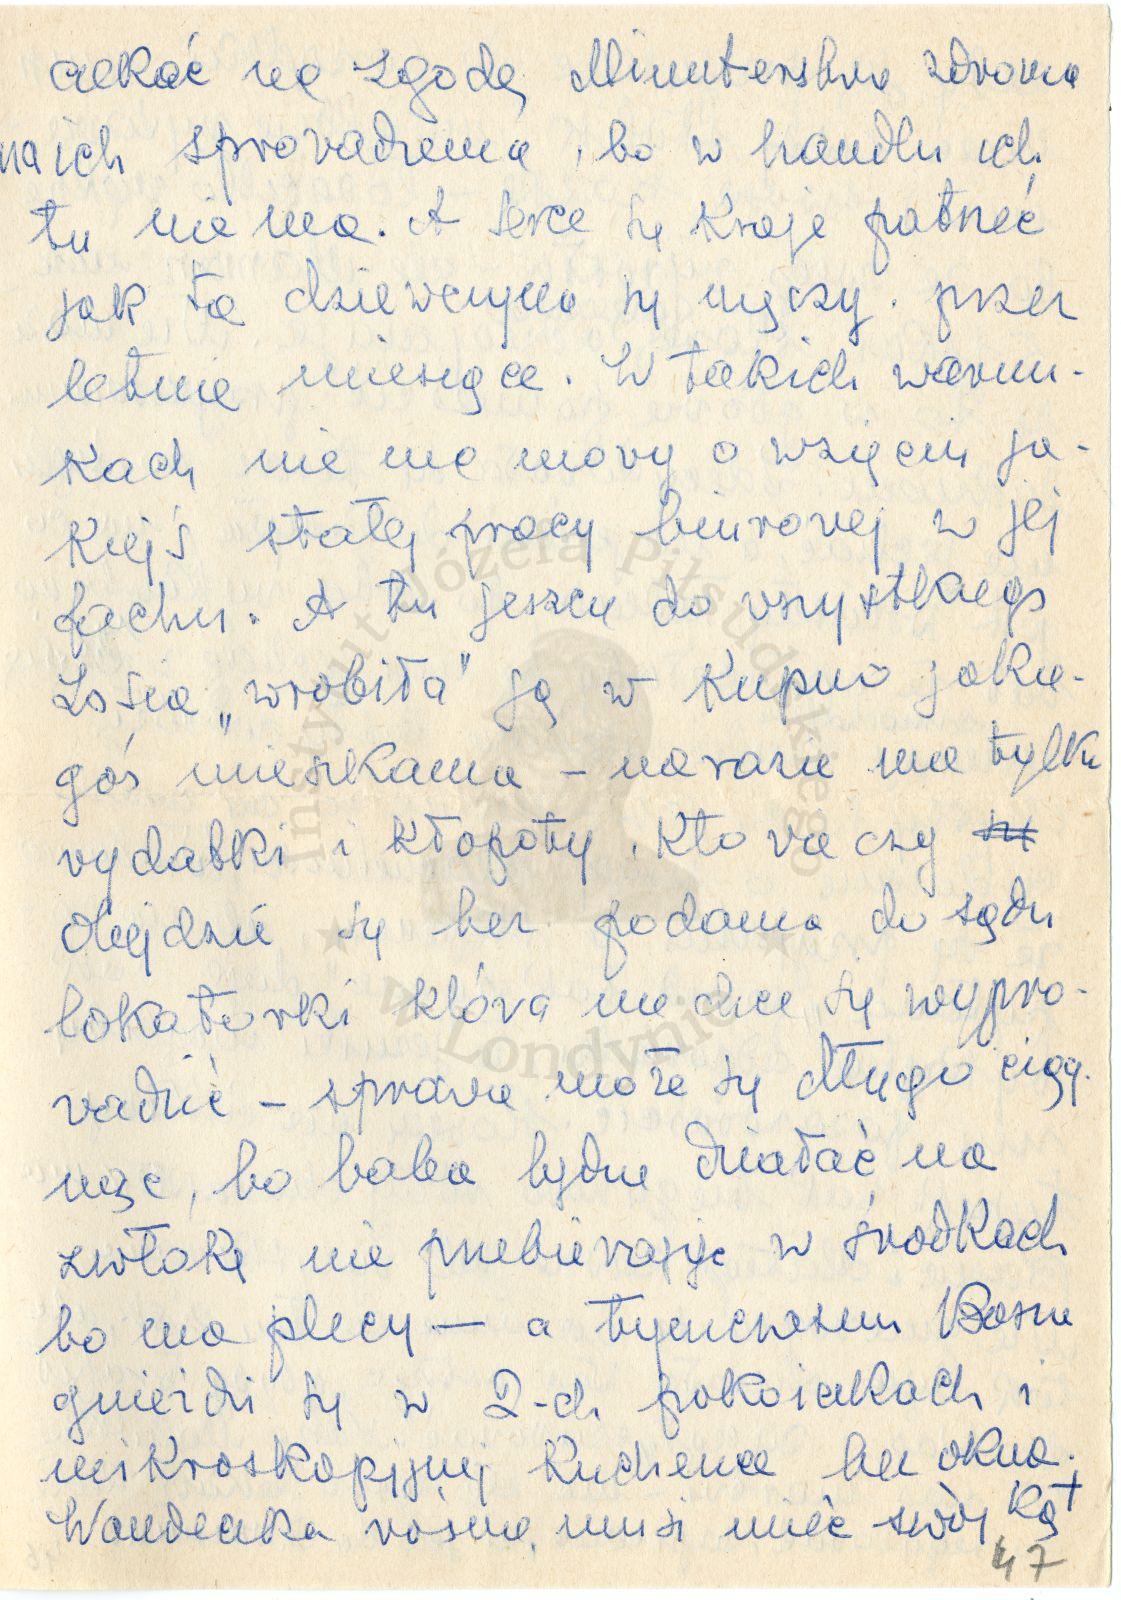 czekać na zgodę Ministerstwa zdrowia
na ich sprowadzenia, bo w handlu ich
tu nie ma. A serce się kraje patrzeć
jak ta dziewczyna się męczy. przez
letnie miesiące. W takich warun-
kach nie ma mowy o wzięciu ja-
kiejś stałej pracy biurowej w jej
fachu. A tu jeszcze do wszystkiego
Zosia „wrobiła" ją w kupno jakie-
goś mieszkania – narazie ma tylko
wydatki i kłopoty. Kto wie czy
obejdzie się bez podania do sądu
lokatorki która nie chce się wypro-
wadzić – sprawa może się długo ciąg-
nąć, bo baba będzie działać na
zwłokę nie przebierając w środkach
bo ma plecy — a tymczasem Basia
gnieździ się w 2-ch pokoikach i
mikroskopijnej kuchence bez okna.
Wandeczka rośnie, musi mieć swój kąt
47
Instytut Józefa Piłsudskiego
w Londynie